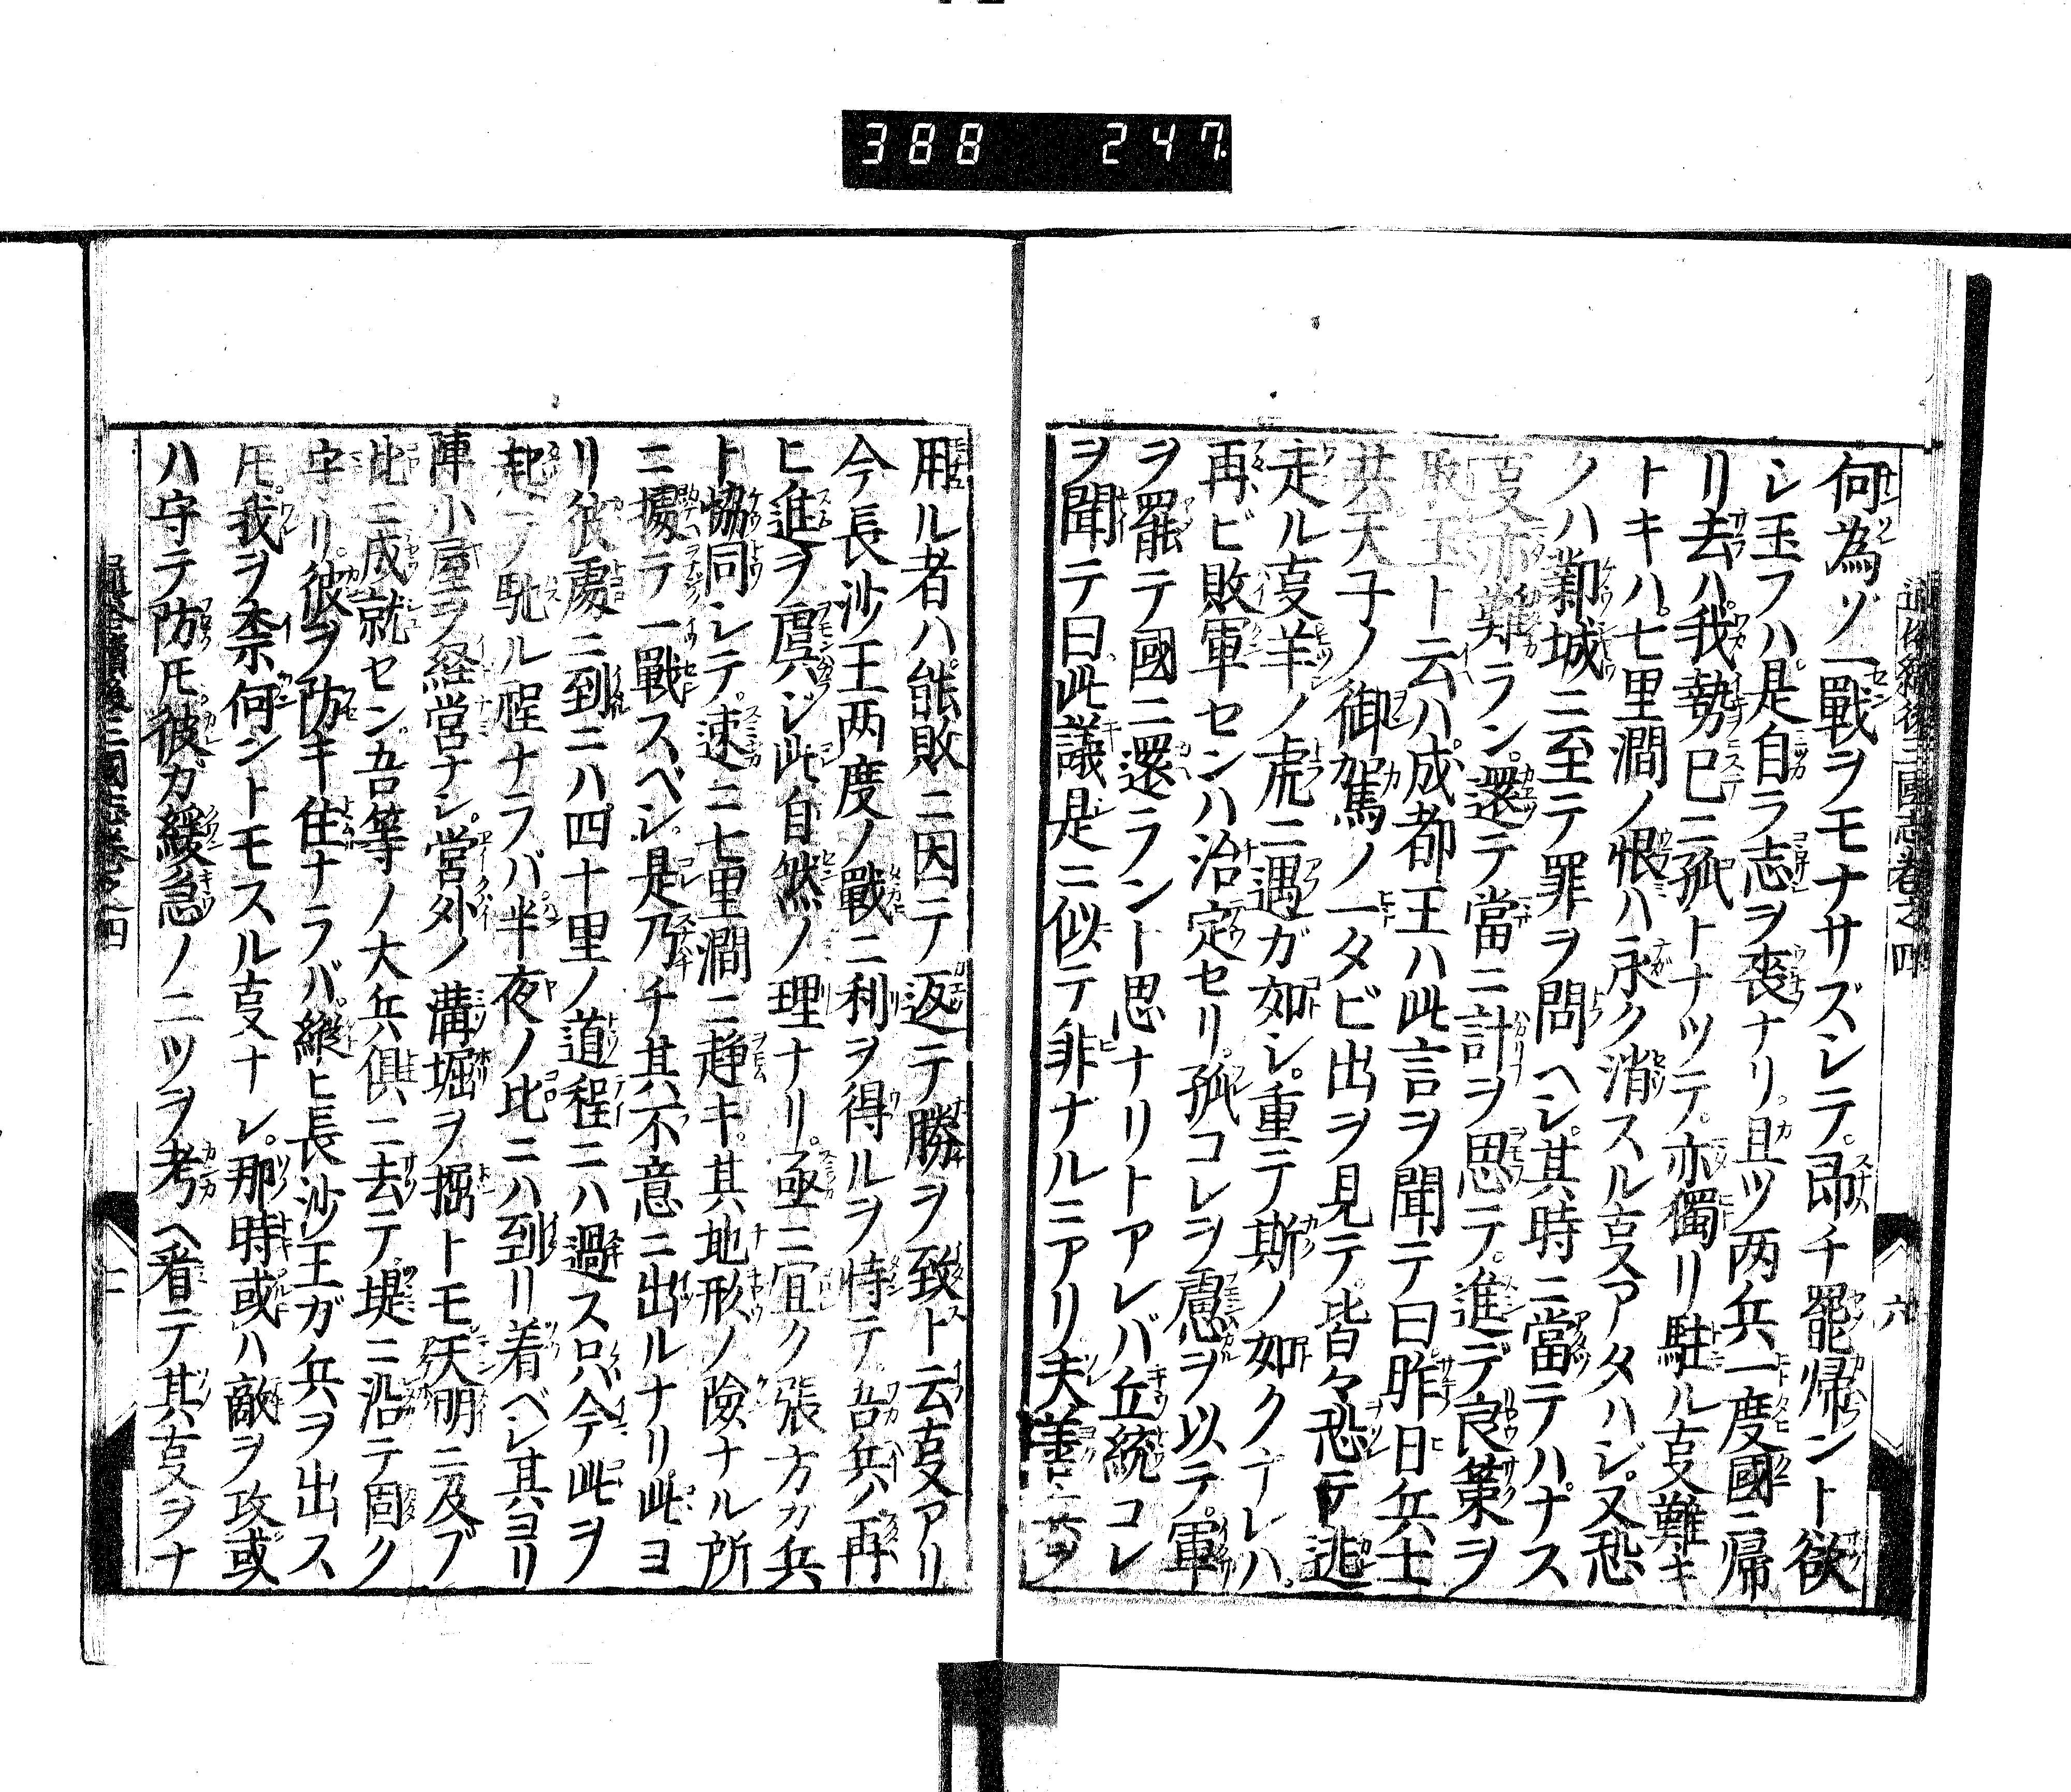 388 247
通俗續後三國志卷之四
六
何為ゾ一戰ヲモナサズシテ。即チ罷帰ント欲
シ玉フハ是自ラ志ヲ喪ナリ。且ツ两兵一度國ニ帰
リ去ハ。我勢已ニ孤トナツテ。亦獨リ駐ル叓難キ
トキハ。七里澗ノ恨ハ永ク消スル叓アタハジ。又恐
クハ鄴城ニ至テ罪ヲ問ヘシ。其時ニ當テハナス
叓亦難ラン。還テ當ニ計ヲ思テ。進デ良策ヲ
玉ト云ハ。成都王ハ此言ヲ聞テ曰昨日兵士
共天子ノ御駕ノ一タビ出ヲ見テ。皆々恐テ逃
走ル叓羊ノ虎ニ遇ガ如シ。重テ斯ノ如クナレハ。
再ビ敗軍センハ治定セリ。孤コレヲ慮ヲ以テ。軍
ヲ罷テ國ニ還ラント思ナリトアレバ丘統コレ
ヲ聞テ曰此議是ニ似テ非ナルニアリ夫善兵ヲ
用ル者ハ能敗ニ因テ返テ勝ヲ致ト云叓アリ
今長沙王两度ノ戰ニ利ヲ得ルヲ恃テ吾兵ノ再
ヒ進ヲ虞ジ此自然ノ理ナリ。亟ニ宜ク張方カ兵
ト協同シテ。速ニ七里澗ニ趣キ。其地形ノ險ナル所
ニ據テ一戰スベシ。是乃チ其不意ニ出ルナリ此ヨ
リ彼處ニ到ニハ四十里ノ道程ニハ過ス只今此ヲ
起テ馳ル程ナラバ半夜ノ比ニハ到リ着ベシ其ヨリ
陣小屋ヲ経営ナシ。営外ノ溝堀ヲ掘トモ天明ニ及ブ
比ニ成就セン。吾等ノ大兵俱ニ去テ。堤ニ沿テ固ク
守リ。彼ヲ防キ住ナラバ。縱ヒ長沙王ガ兵ヲ出ス
𪜈。我ヲ柰何ントモスル叓ナシ。那時或ハ敵ヲ攻或
ハ守テ防𪜈彼カ緩急ノニツヲ考ヘ看テ其叓ヲナ
三國志卷之四